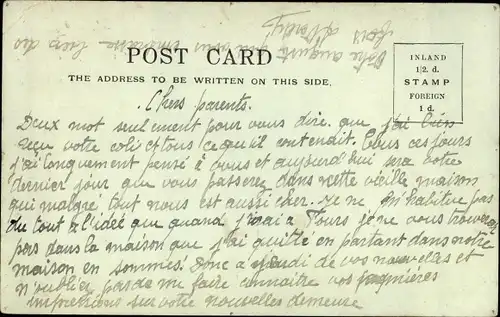 POST CARD
THE ADDRESS TO BE WRITTEN ON THIS SIDE.
INLAND
1/2. d.
STAMP
FOREIGN
1 d.
Chers parents.
Deux mot seulement pour vous dire que j'ai bien
reçu votre coli et tous ce qu'il contendit. Tous ces jours
j'ai longuement pensé a vous et aujourd'hui sera votre
dernier jour que vous passerez dans cette vieille maison
qui malgré tout nous est aussi cher. je ne m'habitue pas
du tout a l'idée que quand j'irai a Tours je ne vous trouverai
pas dans la maison que j'ai quitté en partant dans notre
maison en sommes! Donc a de vos nouvelles et
n'oublier pas de me faire connaitre vos premières
impressions sur votre nouvelles demeure
Votre qui vous embrasse